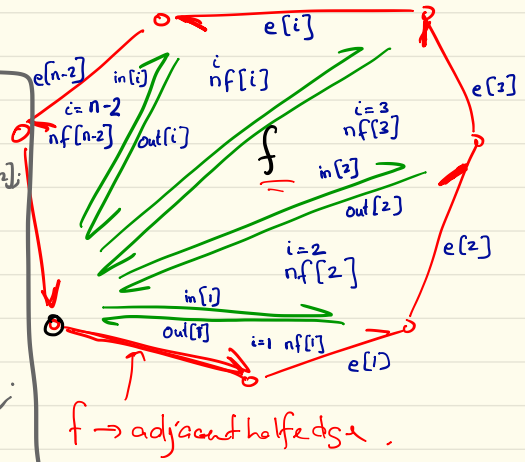 e[i]
e[n-2]
in[i]
i
nf[i]
i = n-2
nf[n-2]
out[i]
e[3]
i=3
nf[3]
f
2];
in[2]
out[2]
e[2]
i=2
nf[2]
in[1]
out[1]
i=1 nf[1]
e[1]
f → adjacent halfedge.